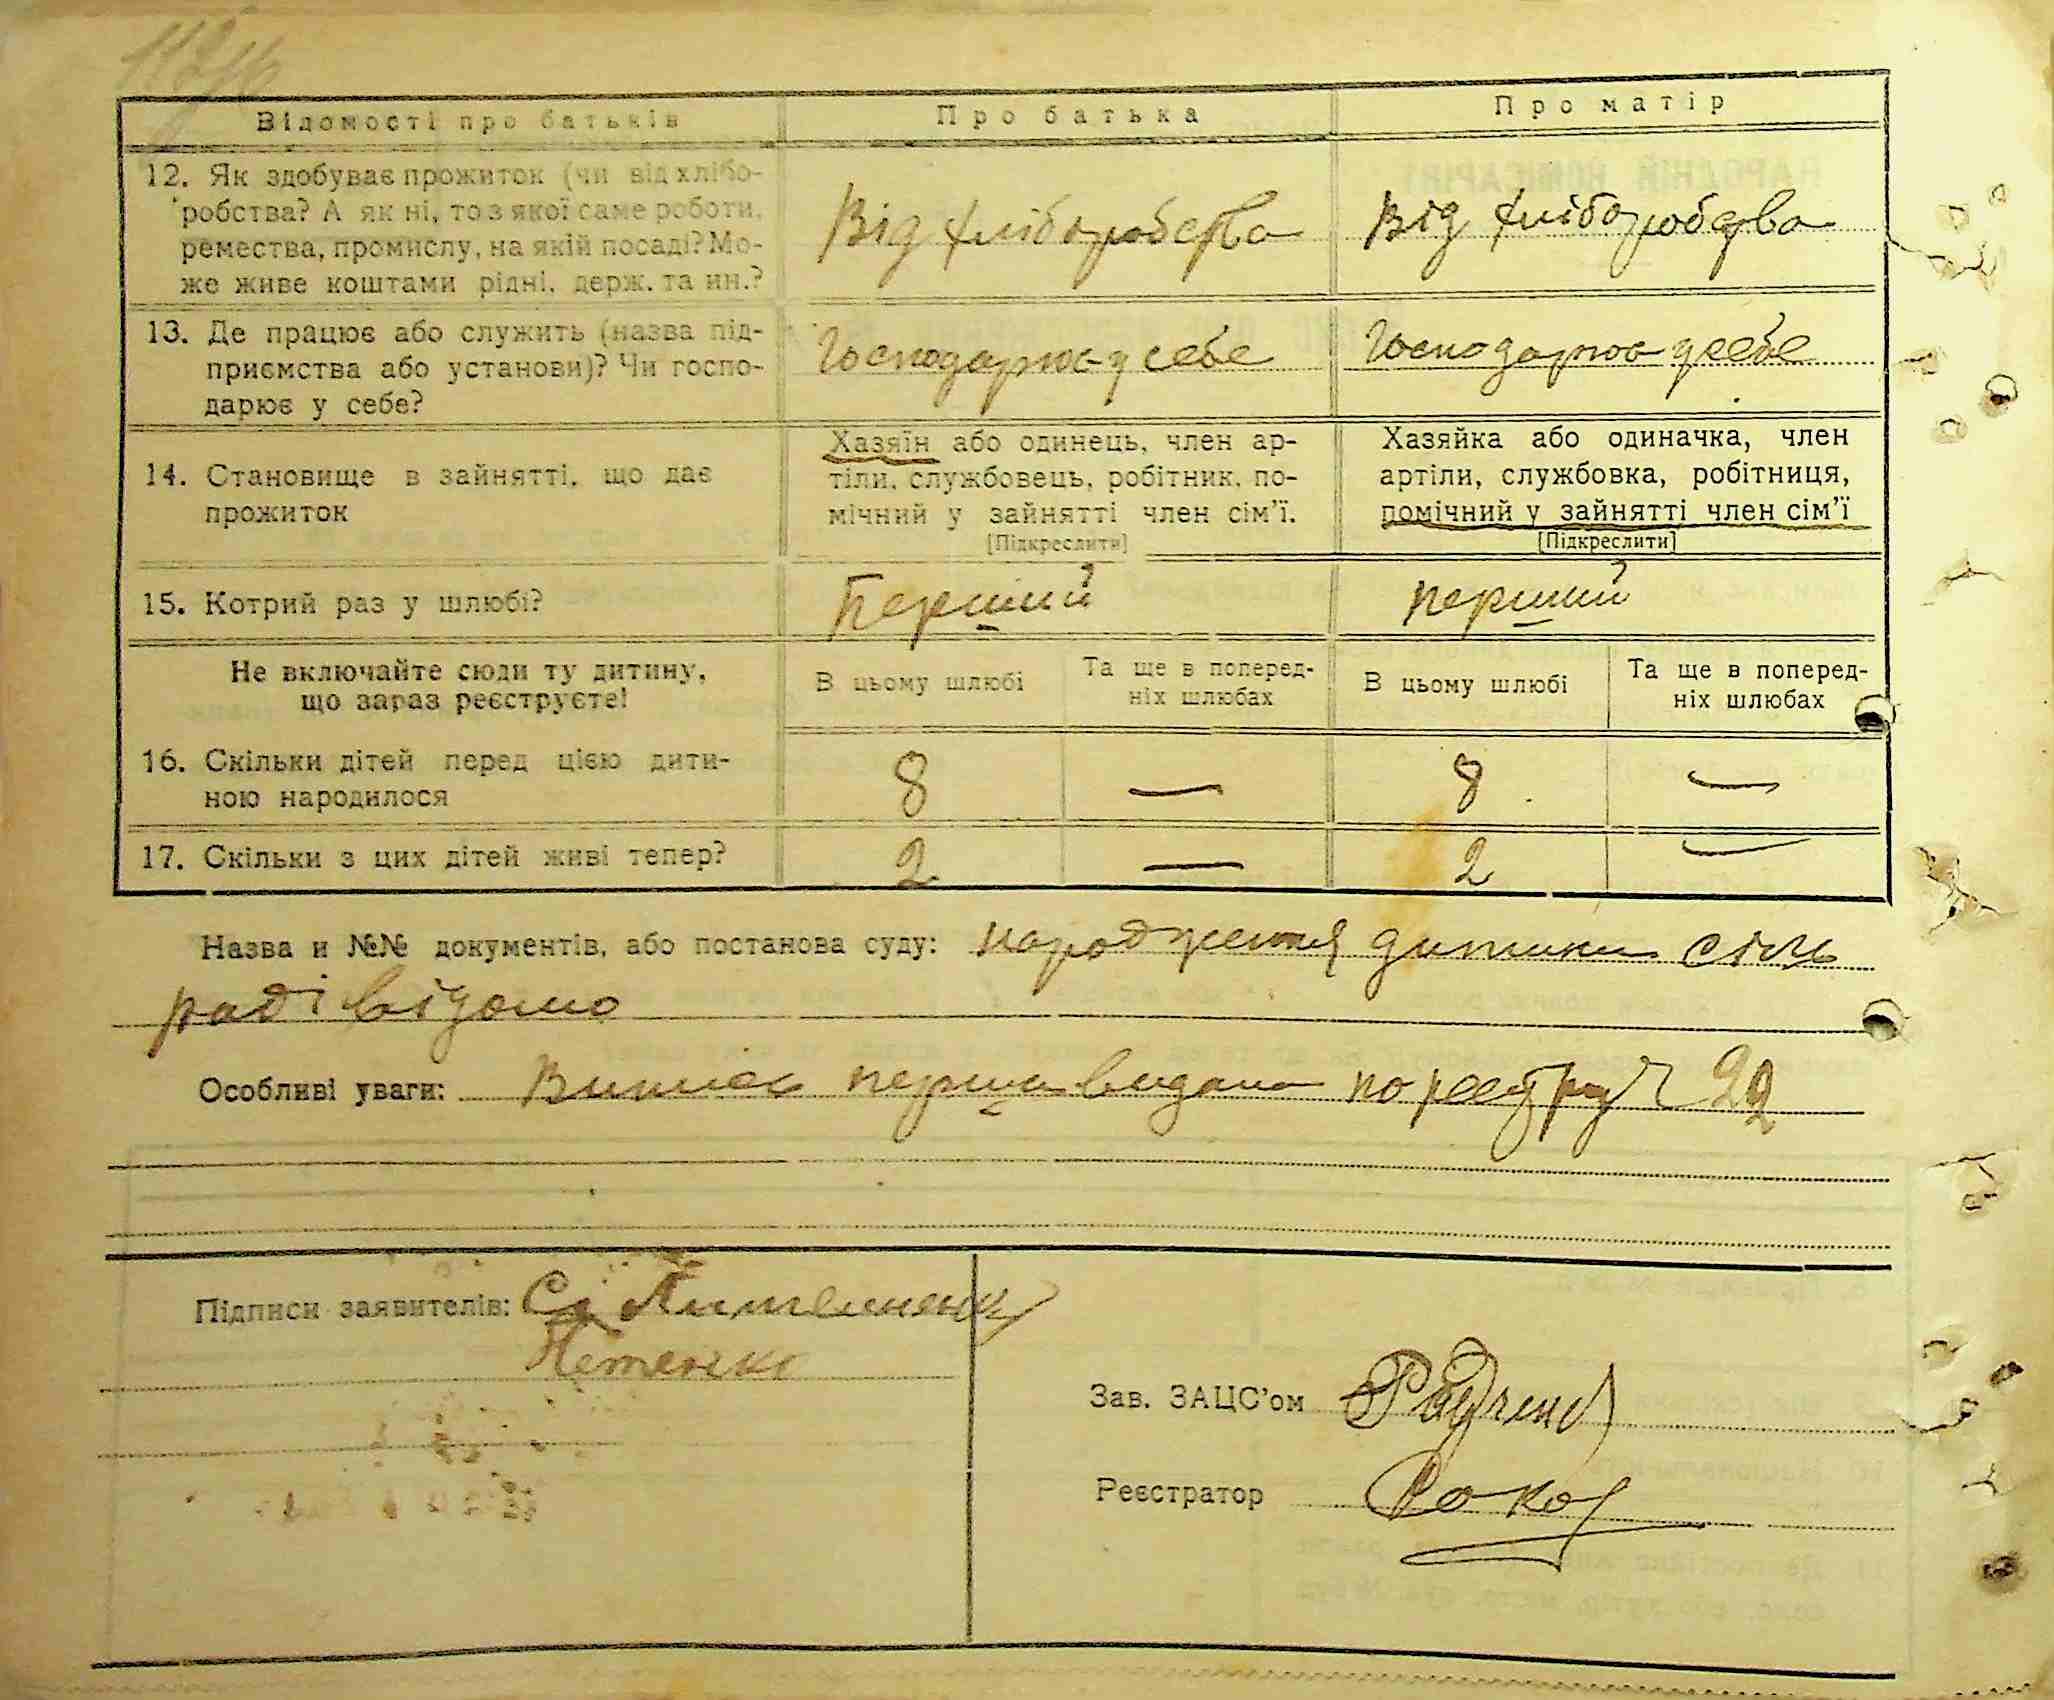 Відомості про батьків
Про батька
Про матір
12. Як здобуває прожиток (чи від хлібо-
робства? А як ні, то з якої саме роботи,
ремества, промислу, на якій посаді? Мо-
же живе коштами рідні, держ. та ин.?
Від хліборобства
Від хліборобства
13. Де працює або служить (назва під-
приємства або установи)? Чи госпо-
дарює у себе?
Господарює у себе
Господарює у себе
14. Становище в зайнятті, що дає
прожиток
Хазяїн або одинець, член ар-
тіли, службовець, робітник, по-
мічний у зайнятті член сім'ї.
[Підкреслити]
Хазяйка або одиначка, член
артіли, службовка, робітниця,
помічний у зайнятті член сім'ї
[Підкреслити]
15. Котрий раз у шлюбі?
Перший
перший
Не включайте сюди ту дитину,
що зараз реєструєте!
В цьому шлюбі
Та ще в поперед-
ніх шлюбах
В цьому шлюбі
Та ще в поперед-
ніх шлюбах
16. Скільки дітей перед цією дити-
ною народилося
8 — 8 —
17. Скільки з цих дітей живі тепер?
2 — 2 —
Назва и №№ документів, або постанова суду: народження дитини сіль
раді відомо
Особливі уваги: Випись перша видана по реєстру 22
Підписи заявителів:
Зав. ЗАЦС'ом
Реєстратор